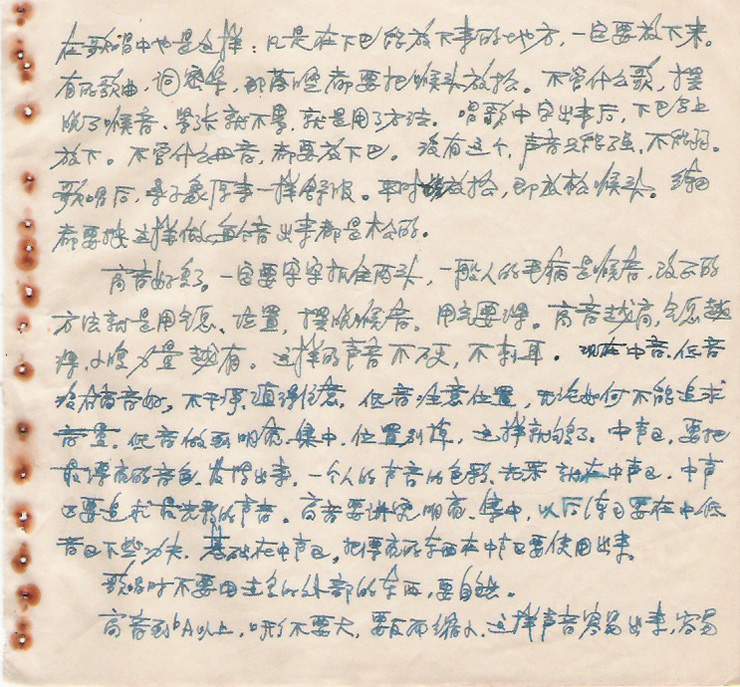 在歌唱中也是这样：凡是在下巴能放下来的地方，一定要放下来。
有的歌曲，词密集，那落腔都要把喉头放松。不管什么歌，摆
脱了喉音、紧张就不累，就是用了方法。唱歌中字出来后，下巴马上
放下。不管什么母音，都要放下巴。没有这个，声音只能强，不能弱。
歌唱后，鼻子象厚事一样舒服。平时放松，即放松喉头。练曲
都要按这样做，每个音出来都是松的。
高音好多了。一定要牢牢抓住两头，一般人的毛病是喉音，改正的
方法就是用气息、位置，摆脱喉音。用气要深。高音越高，气息越
深，小腹力量越有。这样的声音不硬，不刺耳。现在中音、低音
没有高音好，不干净，值得注意。低音注意位置，无论如何不能追求
音量，低音做到明亮、集中，位置别掉，这样就够了。中声区，要把
最漂亮的音色，发挥出来，一个人的声音的色彩、光采就在中声区。中声
区要追求最光彩的声音。高音要讲究明亮、集中，以后练习要在中低
音区下些功夫，基础在中声区，把漂亮的东西在中声区要使用出来。
歌唱时不要用主多的外部的东西，要自然。
高音到bA以上，口形不要大，要反而缩小，这样声音容易出来，容易